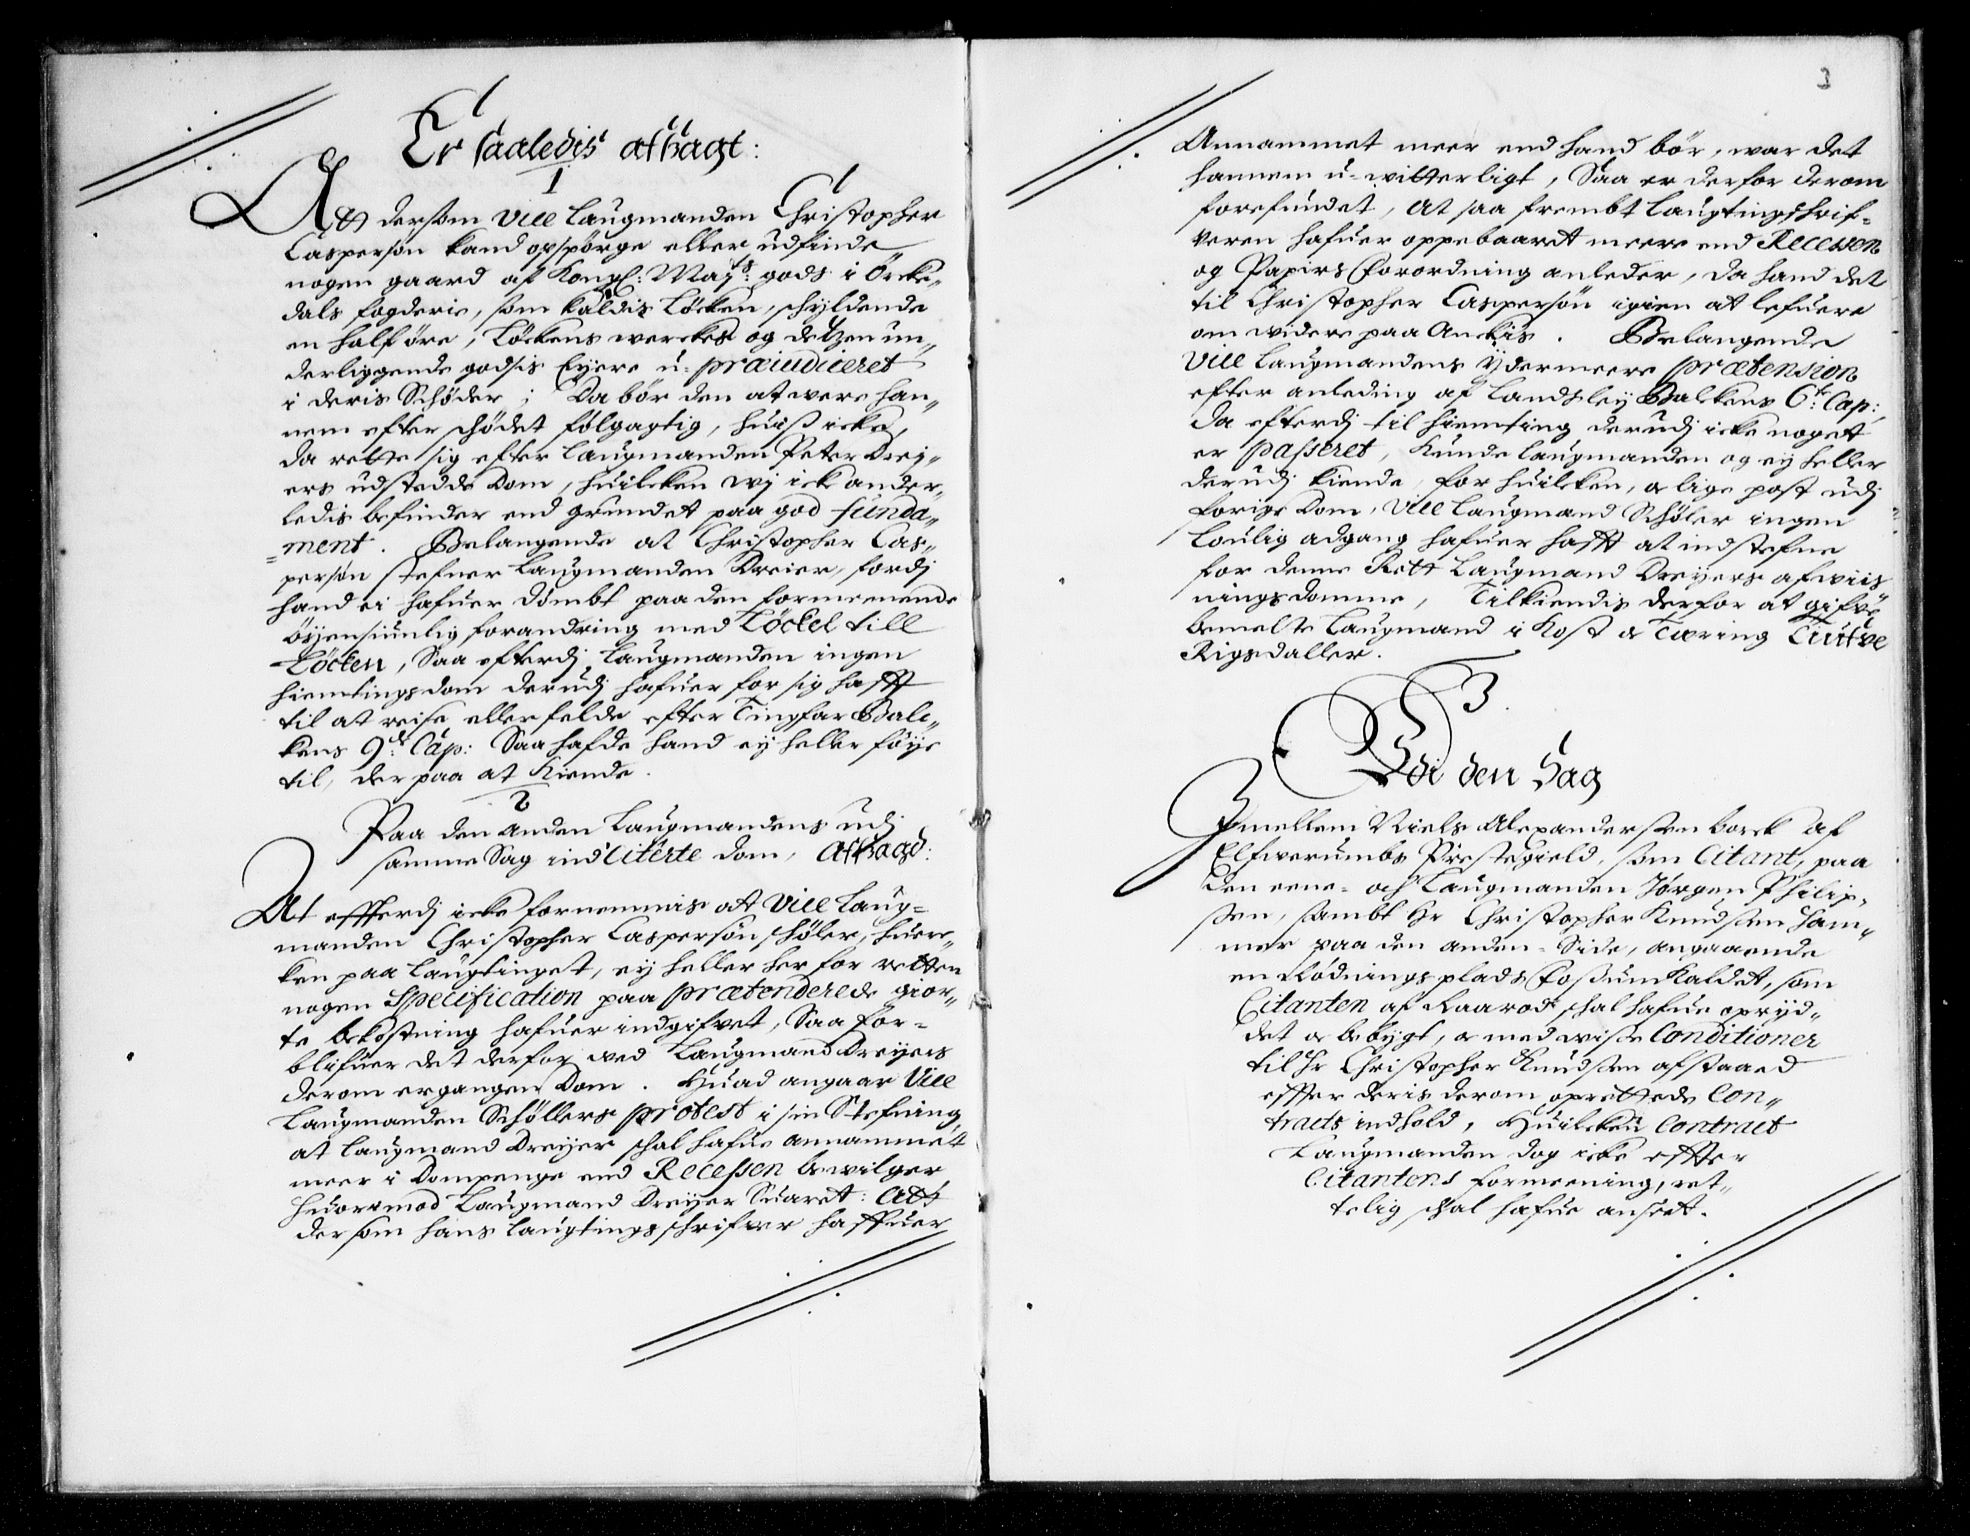 Er saaledis afsagt:
1
Att dersom Vice Laugmanden Christopher
Caspersøn kand opspørge eller udfinde
nogen gaard af Kongl: May:ts gods i Örcke„
dals fogderie, som kaldis Löcken, schyldende
en half öre, Löckens werckes og detzen un„
derliggende godsis Eyere u-præiudiceret
i deris Schöder; Da bör den at were han„
nem efter schödet fölgagtig, huiss icke,
da rette sig efter Laugmanden Peter Drej„
ers udstedde Dom, huilcken wj icke ander„
ledis befinder end grundet paa god funda„
ment. Belangende at Christopher Cas„
persøn stefner Laugmanden Dreier, fordj
hand ei hafuer dömbt paa den formeenende
öyensiunlig forandring med Löckel till
Löcken, Saa efterdj Laugmanden ingen
hiemtingsdom derudj hafuer for sig hafft
til at reise eller felde efter Tingfar Bale„
kens 9:de Cap: Saa hafde hand ey heller föye
til, der paa at Kiende.
2
Paa den anden Laugmandens udj
samme Sag ind Citerte dom, Afsagd:
At effterdj icke fornemmis at Vice Laug„
manden Christopher Caspersøn Schöler, huer„
ken paa Laugtinget, ey heller her for retten
nogen Specification paa prætenderede gior„
te bekostning hafuer indgifvet, Saa for„
blifuer det derfor ved Laugmand Dreyers
derom ergangen Dom. Huad angaar Vice
Laugmanden Schöllers protest i sin Stefning
at Laugmand Dreyer schal hafue annammet
meer i Dompenge end Recessen bewilger
Huorimod Laugmand Dreyer Suaret: Att
dersom hans Laugtingsschrifwer haffuer
3
Annammet meer end hand bör, war det
hannem u-witterligt, Saa er derfor derom
forefundet, At saa frembt Laugtingschrif„
veren hafuer oppebaaret meere end Recessen
og Papirs Forordning anleder, da hand det
til Christopher Caspersøn igien at lefuere
om widere paa Anckis. Belangende
Vice Laugmandens Ydermeere prætension
efter anleding af Landsley Balckens 6:te Cap:
da efterdj til hiemting derudj icke noget
er passeret, kunde Laugmanden og ey heller
derudj kiende, for huilcken, & lige post udj
forige Dom, Vice Laugmand Schöler ingen
louglig adgang hafuer hafft at indstefne
for denne Rett Laugmand Dreyers afwiis
ningsdomme, Tilkiendis derfor at gifve
bemelte Laugmand i Kost & Tæring Tiutve
Rigsdaller.
3.
Udi den Sag
Imellem Niels Alexandersen borck af
Elfwerumbs Prestegield, som Citant, paa
den eene- och Laugmanden Jörgen Philip„
sen, sambt Hr Christopher Knudsen Ham„
mer paa den anden- Side, angaaende
en Rödningsplads Fossum Kaldet, som
Citanten af Raarodt schal hafue opryd„
det & bebygt, & med wisse Conditioner
til Hr Christopher Knudsen afstaaed
effter deris derom oprettede Con„
tracts indhold, Huilcken Contract
Laugmanden dog icke effter
Citantens formeening, ret„
telig schal hafue anseet.